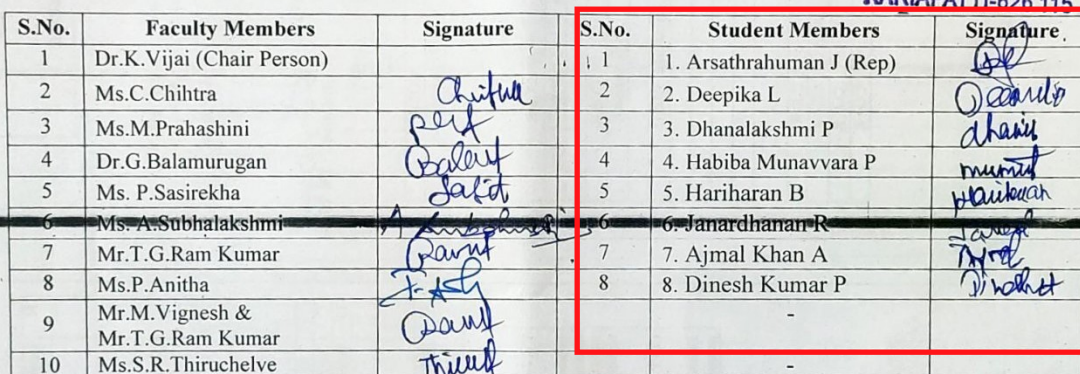 S.No. Faculty Members Signature S.No. Student Members Signature
1 Dr.K.Vijai (Chair Person) 1 1. Arsathrahuman J (Rep)
2 Ms.C.Chihtra 2 2. Deepika L
3 Ms.M.Prahashini 3 3. Dhanalakshmi P
4 Dr.G.Balamurugan 4 4. Habiba Munavvara P
5 Ms. P.Sasirekha 5 5. Hariharan B
6 Ms. A.Subhalakshmi 6 6. Janardhanan R
7 Mr.T.G.Ram Kumar 7 7. Ajmal Khan A
8 Ms.P.Anitha 8 8. Dinesh Kumar P
9 Mr.M.Vignesh & -
Mr.T.G.Ram Kumar
10 Ms.S.R.Thiruchelve -